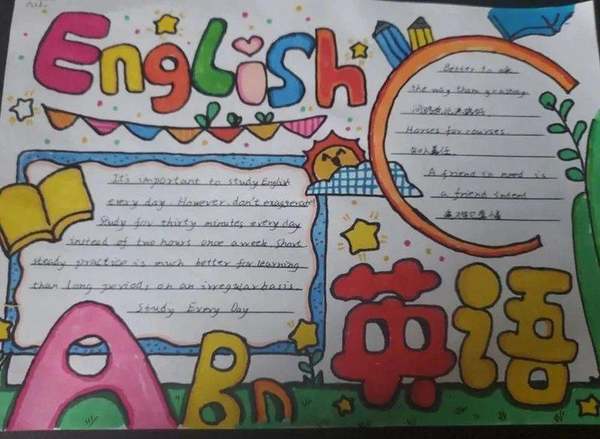 English
It's important to study English
every day. However, don't exagerate
Study for thirty minutes every day
instead of two hours once a week. Short
steady practice is much better for learning
than long period, on an irregular basis.
Study Every Day
Better to ask
the way than go astray
问路总比迷路好.
Horses for courses
知人善任.
A friend in need is
a friend indeed
英语